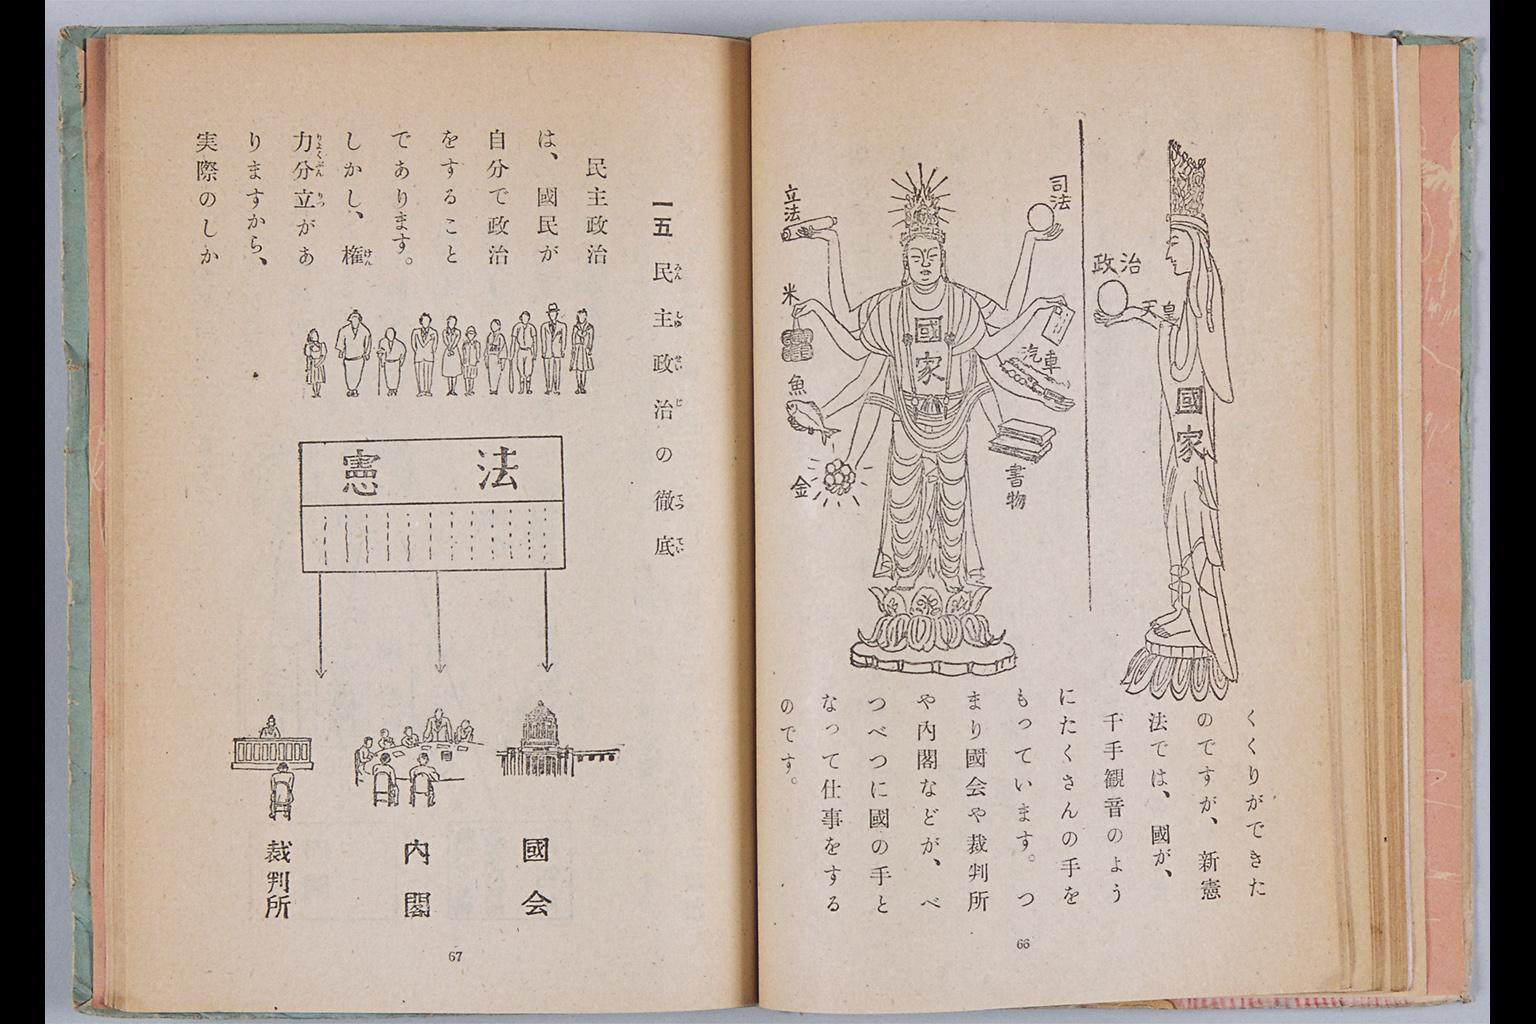 政治
天皇
國家
司法
立法
國家
米
汽車
魚
書物
金
くくりができた
のですが、新憲
法では、國が、
千手観音のよう
にたくさんの手を
もっています。つ
まり國会や裁判所
や内閣などが、べ
つべつに國の手と
なって仕事をする
のです。
66
一五 民主政治の徹底
みんしゅせいじ てってい
民主政治
は、國民が
自分で政治
をすること
であります。
しかし、権
けん
力分立があ
りょくぶんりつ
りますから、
実際のしか
憲法
國会
内閣
裁判所
67